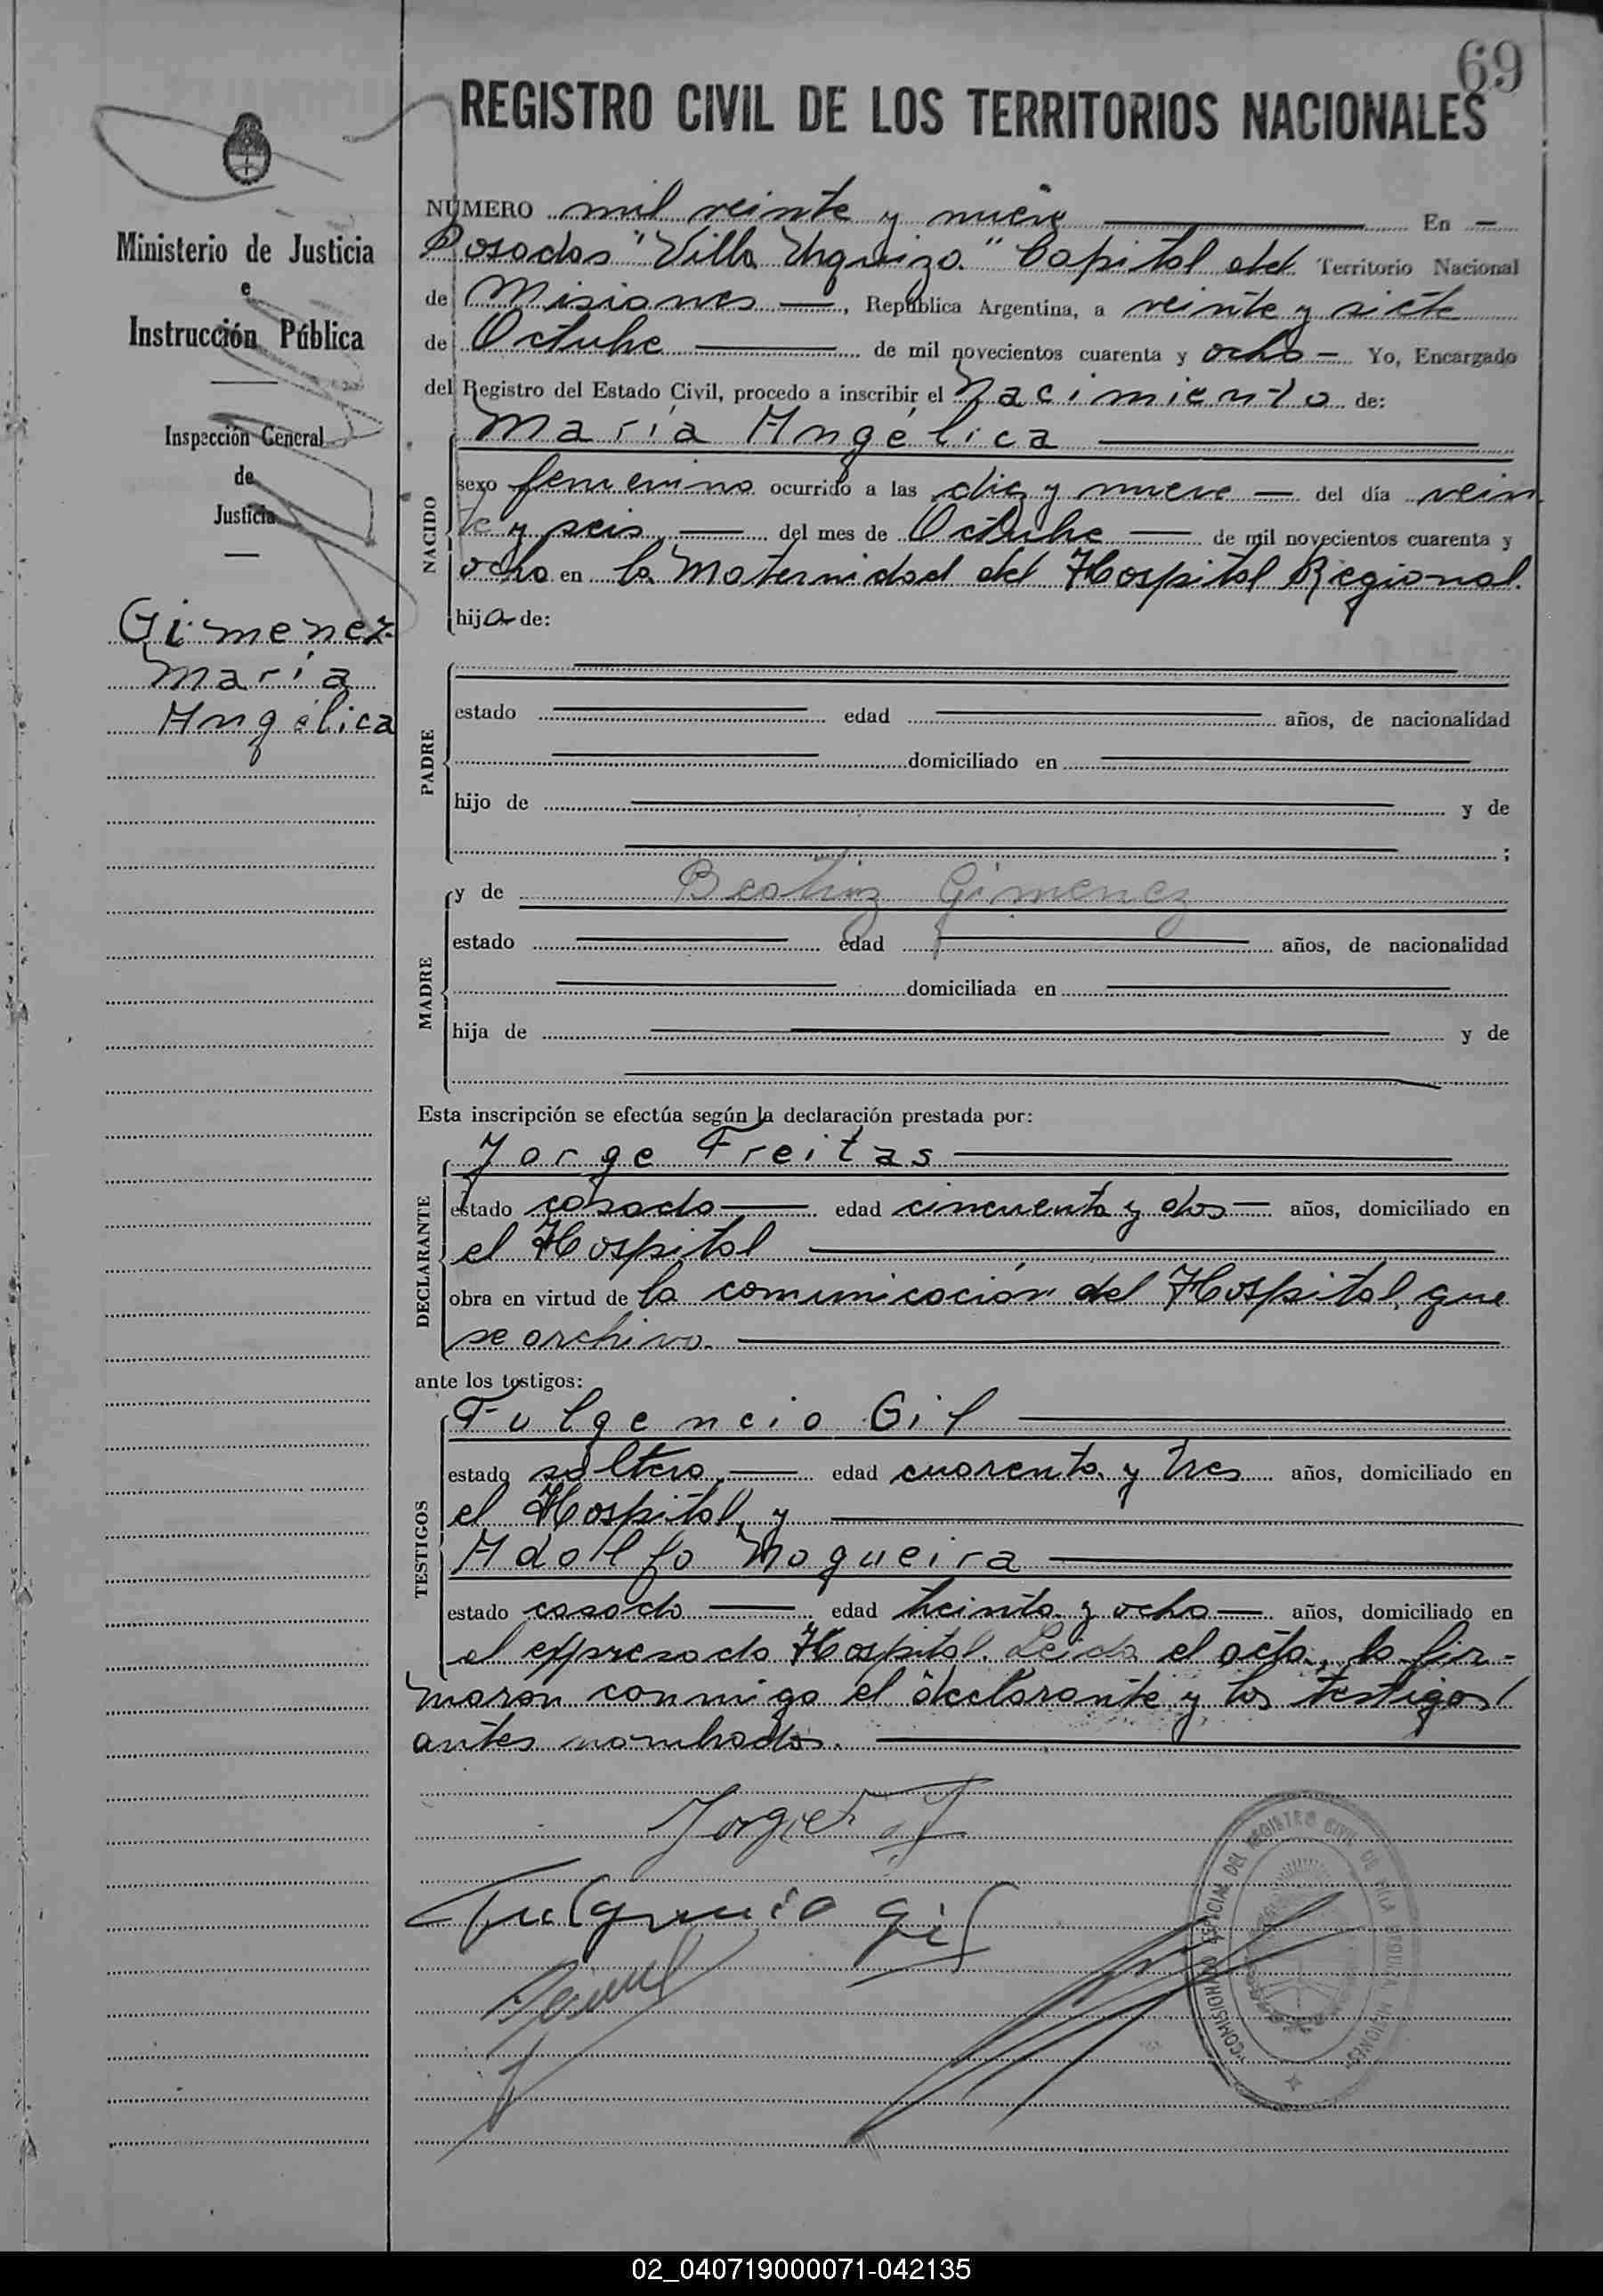 69
REGISTRO CIVIL DE LOS TERRITORIOS NACIONALES
Ministerio de Justicia
e
Instrucción Pública
Inspección General
de
Justicia
Gimenez
María
Angélica
NÚMERO mil veinte y nueve En
Posadas "Villa Urquiza" Capital del Territorio Nacional
de Misiones, República Argentina, a veinte y siete
de Octubre de mil novecientos cuarenta y ocho Yo, Encargado
del Registro del Estado Civil, procedo a inscribir el Nacimiento de:
NACIDO
María Angélica
sexo femenino ocurrido a las diez y nueve del día vein
te y seis del mes de Octubre de mil novecientos cuarenta y
ocho en la Maternidad del Hospital Regional.
hija de:
PADRE
estado edad años, de nacionalidad
domiciliado en
hijo de y de
;
MADRE
y de Beatriz Gimenez
estado edad años, de nacionalidad
domiciliada en
hija de y de
Esta inscripción se efectúa según la declaración prestada por:
DECLARANTE
Jorge Freitas
estado casado edad cincuenta y dos años, domiciliado en
el Hospital
obra en virtud de la comunicación del Hospital, que
se archiva.
ante los testigos:
TESTIGOS
Fulgencio Gil
estado soltero, edad cuarenta y tres años, domiciliado en
el Hospital, y
Adolfo Nogueira
estado casado edad treinta y ocho años, domiciliado en
el expresado Hospital. Leida el acta, la fir-
maron conmigo el declarante y los testigos
antes nombrados.
Jorge F
Fulgencio Gil
COMISIONADO ESPECIAL DEL REGISTRO CIVIL DE VILLA URQUIZA MISIONES
02_040719000071-042135